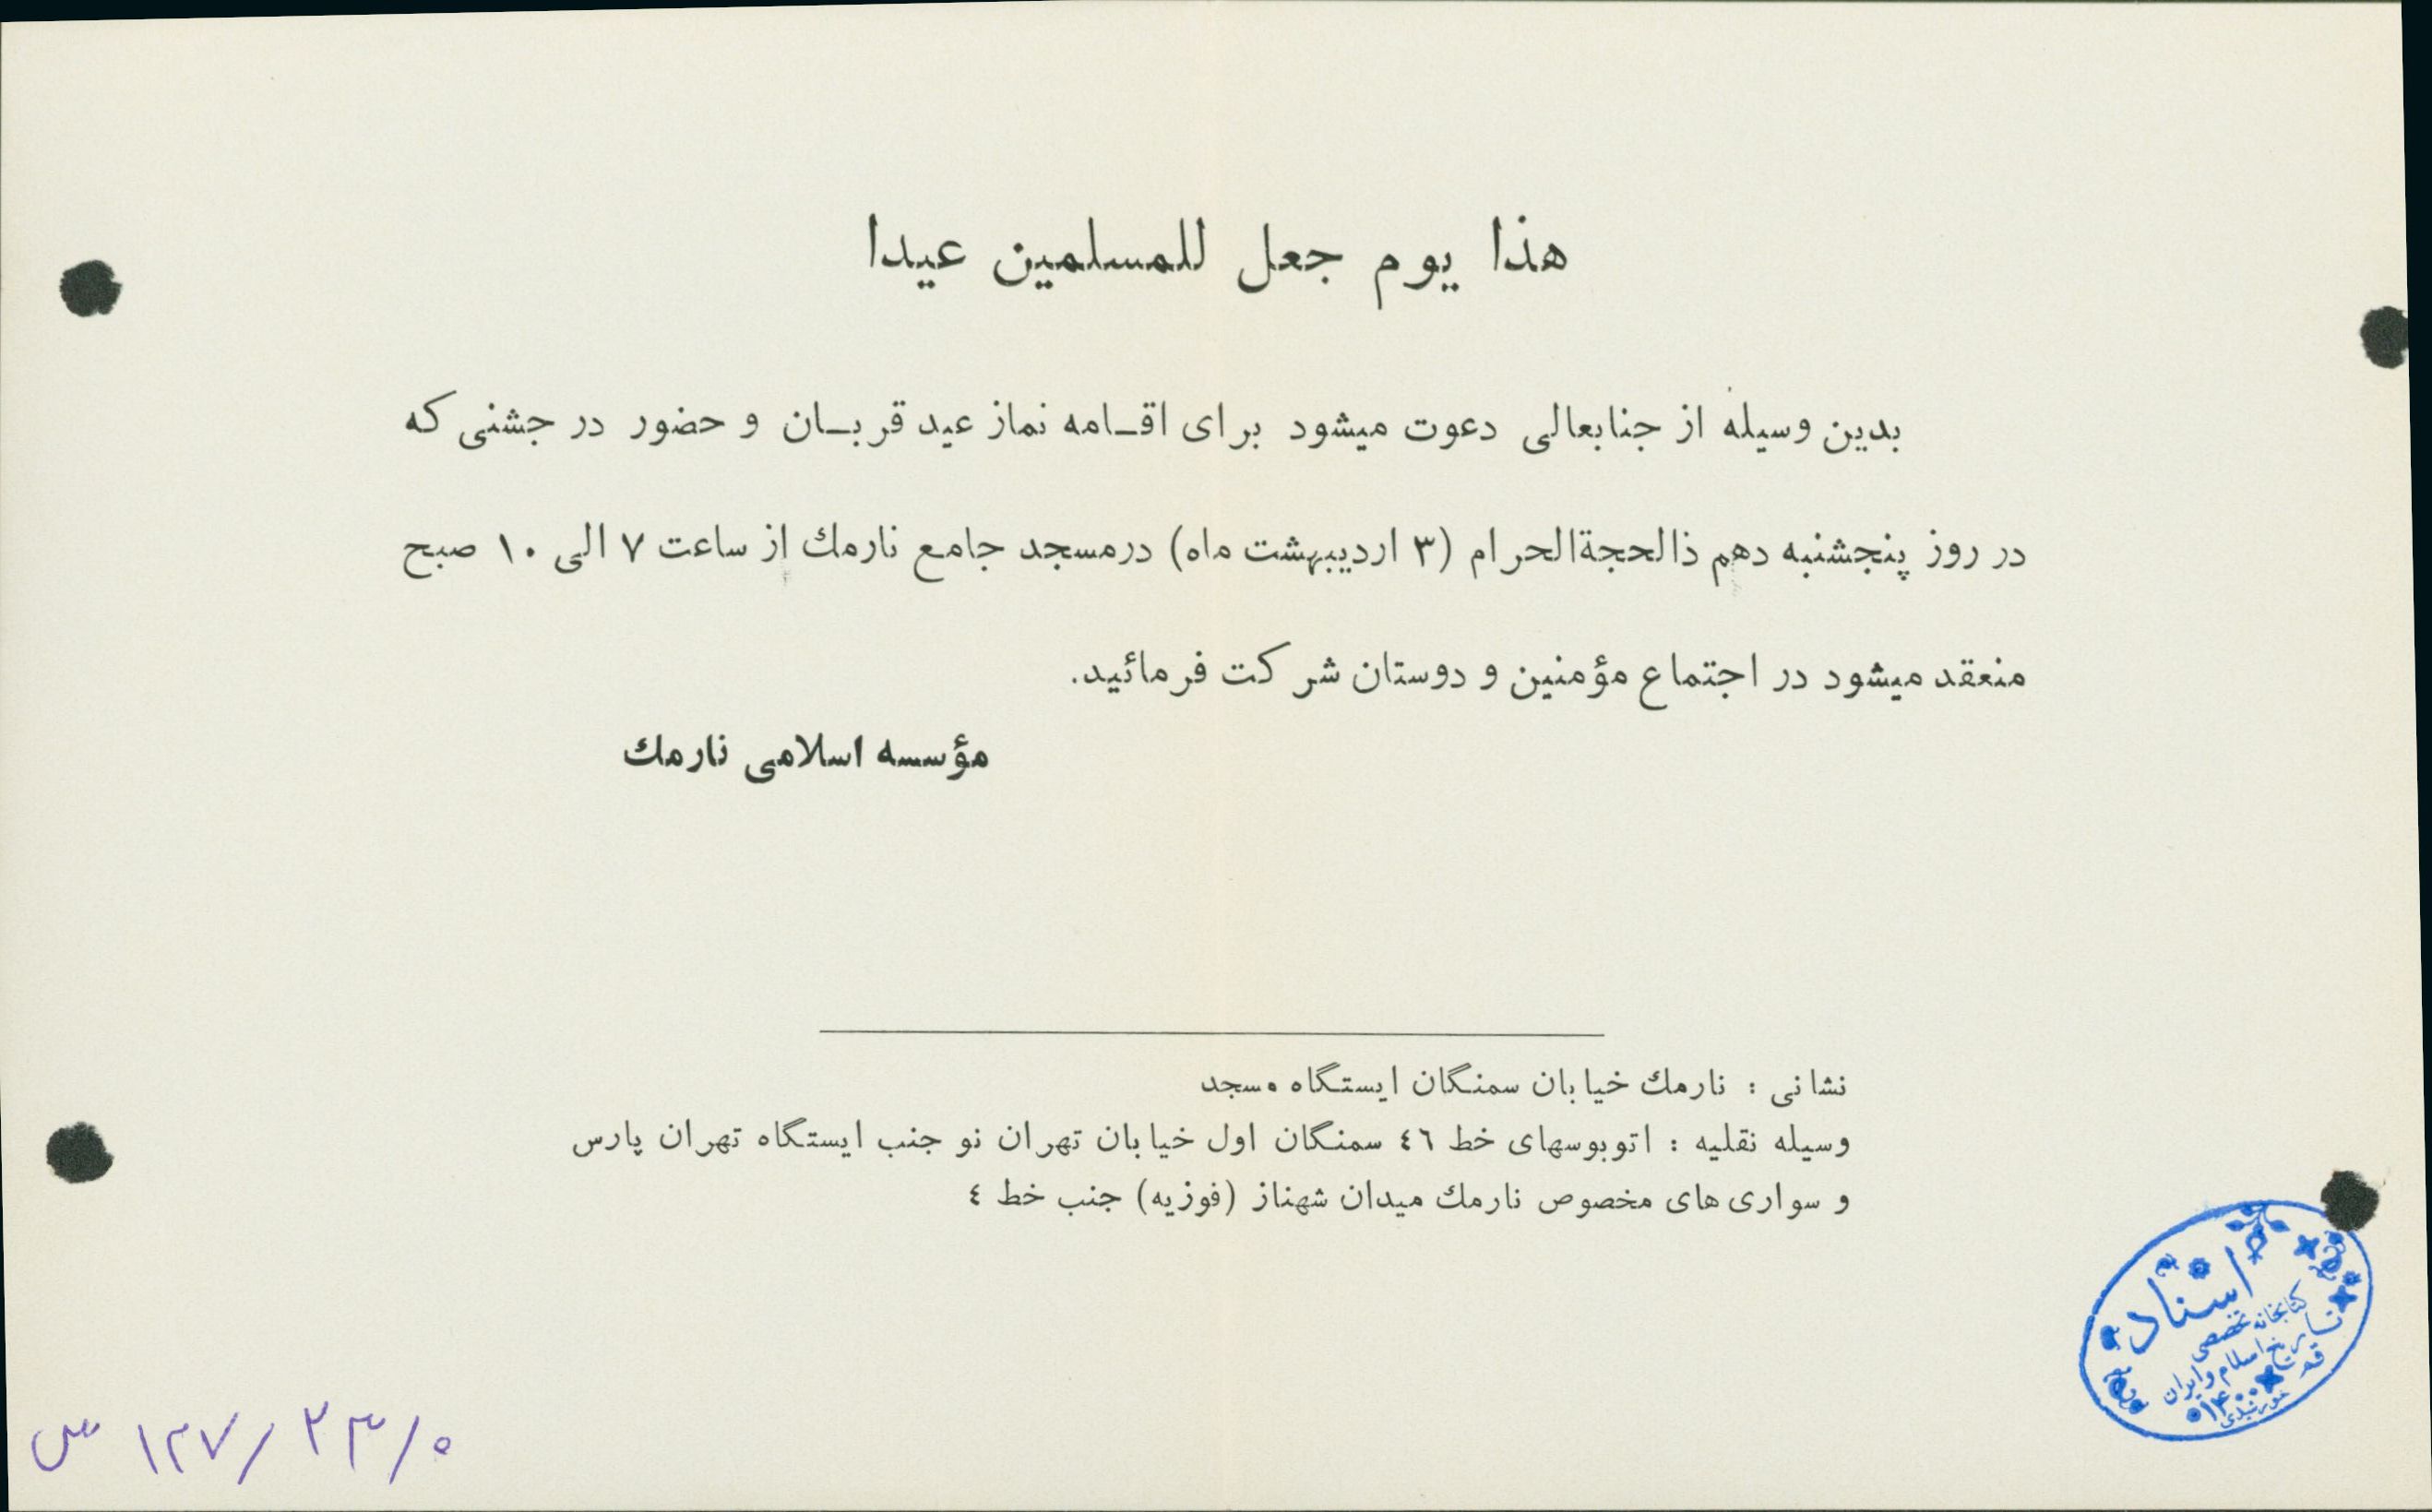 هذا يوم جعل للمسلمين عيدا
بدین وسیله از جنابعالی دعوت میشود برای اقـامه نماز عید قربـان و حضور در جشنی که
در روز پنجشنبه دهم ذالحجةالحرام (۳ اردیبهشت ماه) درمسجد جامع نارمك از ساعت ۷ الی ۱۰ صبح
منعقد میشود در اجتماع مؤمنین و دوستان شرکت فرمائید.
مؤسسه اسلامی نارمك
نشانی : نارمك خیابان سمنگان ایستگاه مسجد
وسیله نقلیه : اتوبوسهای خط ٤٦ سمنگان اول خیابان تهران نو جنب ایستگاه تهران پارس
و سواری های مخصوص نارمك میدان شهناز (فوزیه) جنب خط ٤
اسناد
کتابخانه تخصصی
تاریخ اسلام و ایران
قم